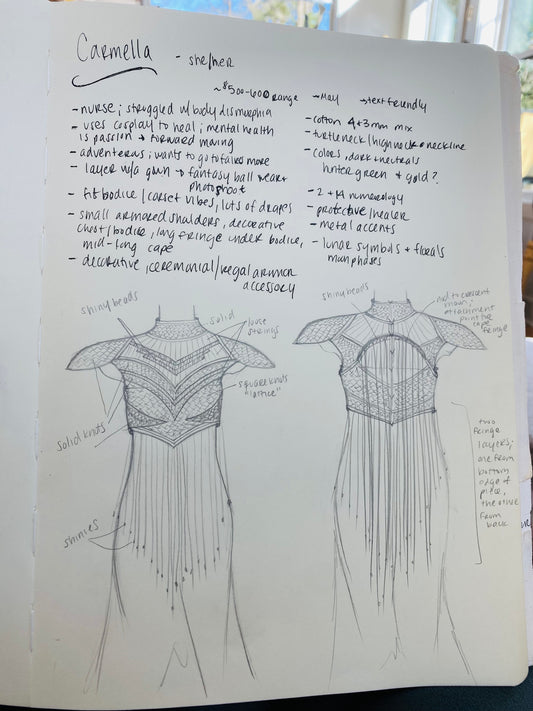 Carmella - she/her
~$500-600 range
- nurse; struggled w/ body dysmorphia
- uses cosplay to heal; mental health
is passion → forward moving
- adventerous; wants to go to faires more
- layer w/ a gown → fantasy ball wear +
photoshoot
- fit bodice / corset vibes, lots of drapes
- small armored shoulders, decorative
chest/bodice, long fringe under bodice,
mid-long cape
- decorative, ceremonial/regal armor
accessory
- May → text friendly
- cotton 4+3mm mix
- turtleneck/high neck neckline
- colors, dark + neutrals
hunter green + gold?
- 2 + 14 numerology
- protective/healer
- metal accents
- lunar symbols + florals
moon phases
shiny beads
solid
loose
strings
square knots
"lattice"
solid knots
shinies
shiny beads
crescent
moon;
attachment
point for
cape
fringe
two
fringe
layers;
one from
bottom
edge of
piece,
the other
from
back